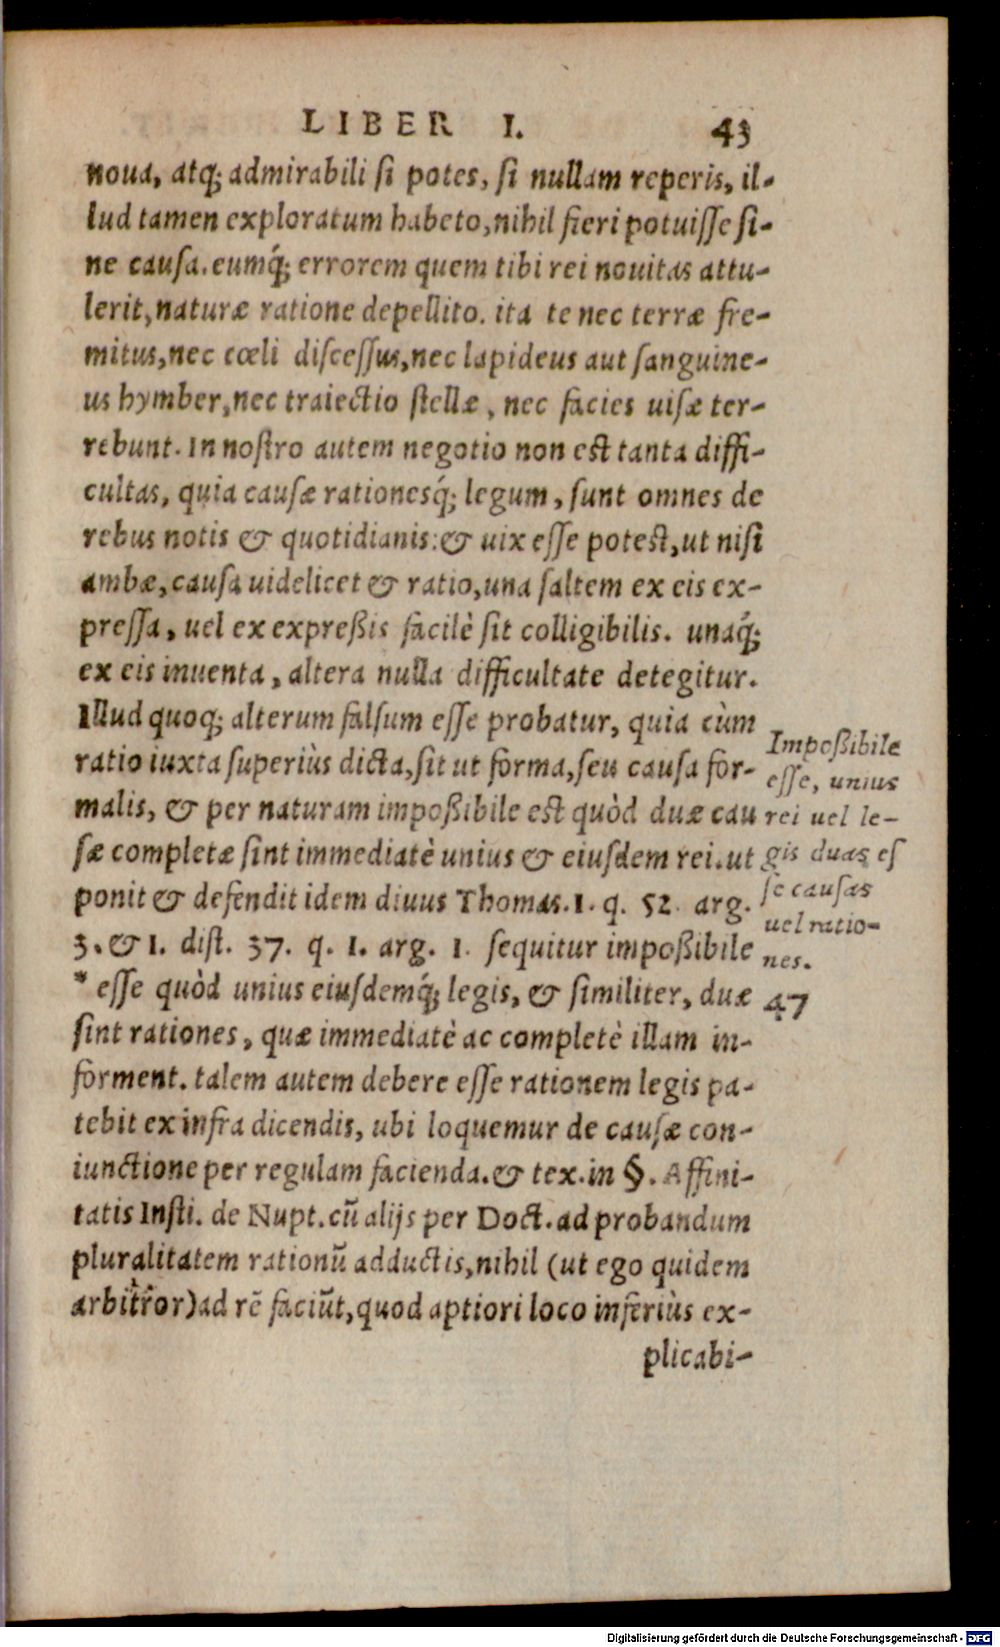 LIBER I. 43
noua, atq́; admirabili ſi potes, ſi nullam reperis, il-
lud tamen exploratum habeto, nihil fieri potuiſſe ſi-
ne cauſa. eumq́; errorem quem tibi rei nouitas attu-
lerit, naturæ ratione depellito. ita te nec terræ fre-
mitus, nec cœli diſceſſus, nec lapideus aut ſanguine-
us hymber, nec traiectio ſtellæ, nec facies uiſæ ter-
rebunt. In noſtro autem negotio non eſt tanta diffi-
cultas, quia cauſæ rationesq́; legum, ſunt omnes de
rebus notis & quotidianis: & uix eſſe poteſt, ut niſi
ambæ, cauſa uidelicet & ratio, una ſaltem ex eis ex-
preſſa, uel ex expreßis facilè ſit colligibilis. unaq́;
ex eis inuenta, altera nulla difficultate detegitur.
Illud quoq; alterum falſum eſſe probatur, quia cùm
ratio iuxta ſuperiùs dicta, ſit ut forma, ſeu cauſa for-
malis, & per naturam impoßibile eſt quòd duæ cau
ſæ completæ ſint immediatè unius & eiuſdem rei. ut
ponit & defendit idem diuus Thomas. I. q. 52. arg.
3. & I. diſt. 37. q. I. arg. I. ſequitur impoßibile
* eſſe quòd unius eiuſdemq́; legis, & ſimiliter, duæ
ſint rationes, quæ immediatè ac completè illam in-
forment. talem autem debere eſſe rationem legis pa-
tebit ex infra dicendis, ubi loquemur de cauſæ con-
iunctione per regulam facienda. & tex. in §. Affini-
tatis Inſti. de Nupt. cū alijs per Doct. ad probandum
pluralitatem rationū adductis, nihil (ut ego quidem
arbitror) ad rē faciūt, quod aptiori loco inferiùs ex-
plicabi-
Impoßibile
eſſe, unius
rei uel le-
gis duas eſ
ſe cauſas
uel ratio-
nes.
47
Digitalisierung gefördert durch die Deutsche Forschungsgemeinschaft - DFG